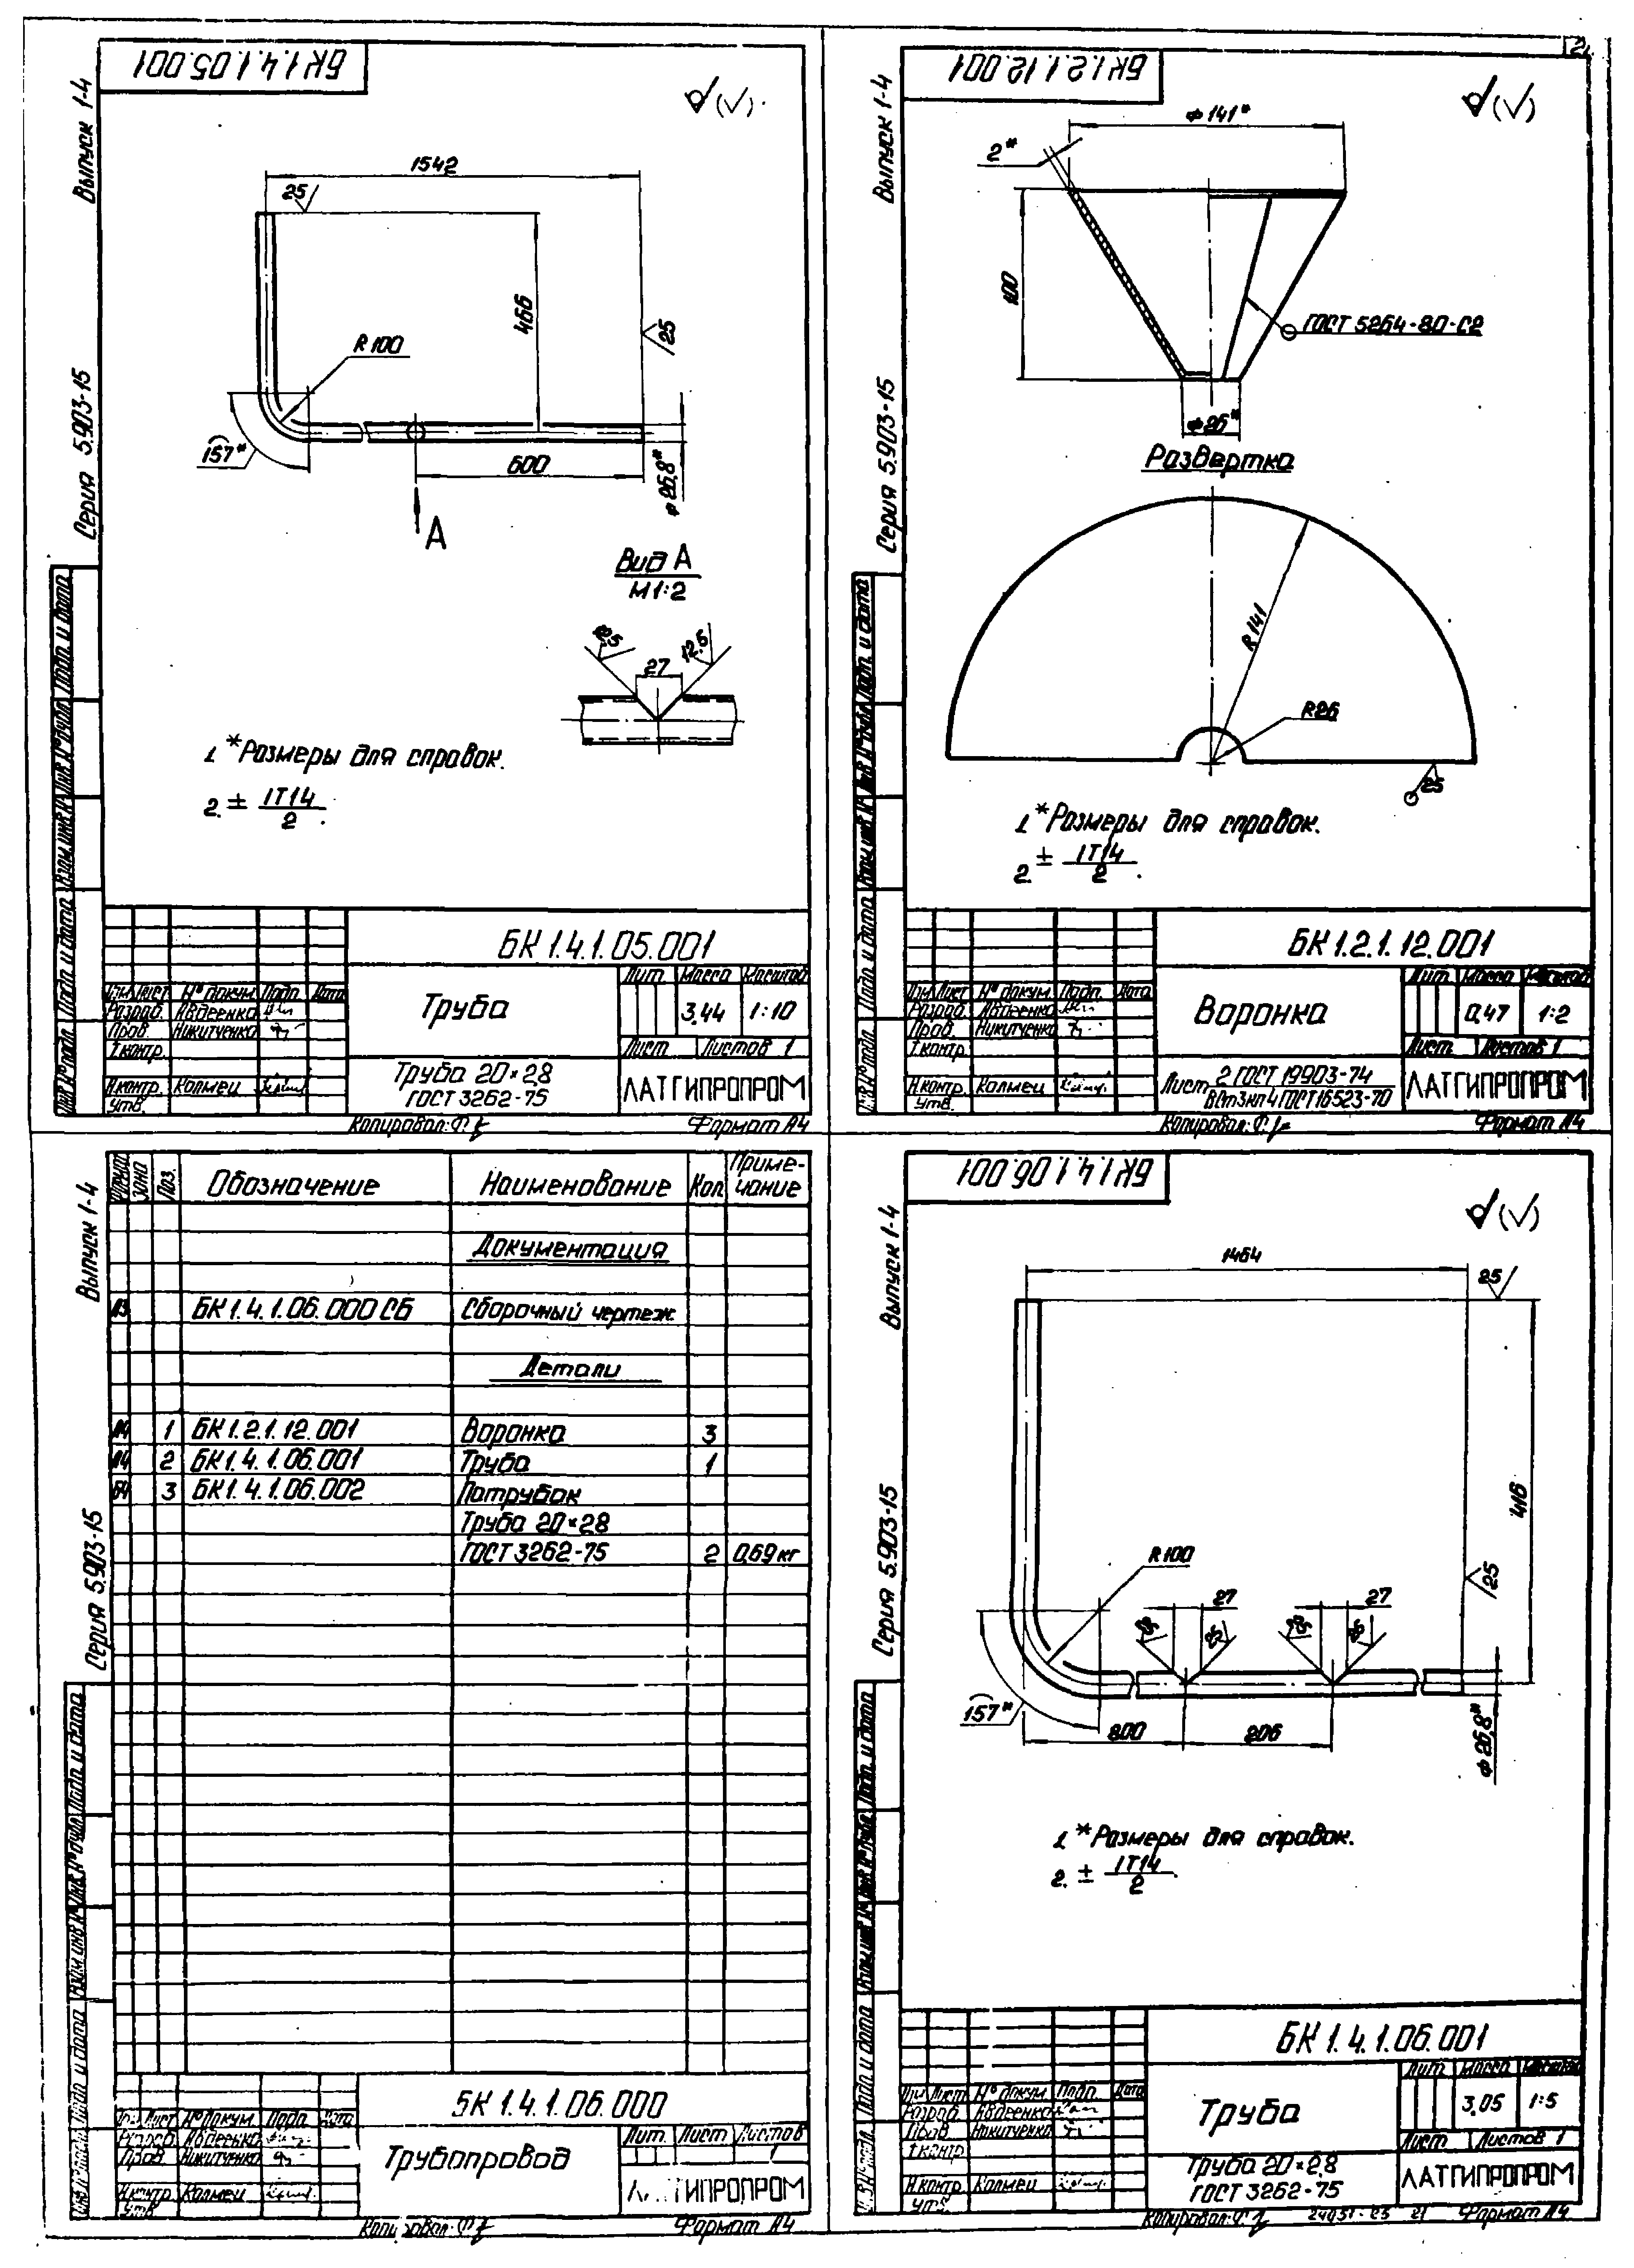 БК1.4.1.05.001
Выпуск 1-4
Серия 5.903-15
1542
25
466
25
R100
157*
600
ф26,8*
А
Вид А
М1:2
12.5
27
1. *Размеры для справок.
2. ± IT14/2.
Подп. и дата
БК1.4.1.05.001
Труба
Лит. Масса Масштаб
3,44 1:10
Лист Листов 1
Изм Лист № докум. Подп. Дата
Разраб. Авдеенко
Пров. Никитченко
Т.контр.
Н.контр. Калмец
Утв.
Труба 20×2,8
ГОСТ 3262-75
ЛАТГИПРОПРОМ
Копировал:
Формат А4
21
БК1.2.1.12.001
Выпуск 1-4
Серия 5.903-15
ф141*
2*
100
ГОСТ 5264-80-С2
ф26*
Развертка
R141
R26
25
1. *Размеры для справок.
2. ± IT14/2.
Подп. и дата
БК1.2.1.12.001
Воронка
Лит. Масса Масштаб
0,47 1:2
Лист Листов 1
Изм Лист № докум. Подп. Дата
Разраб. Авдеенко
Пров. Никитченко
Т.контр.
Н.контр. Калмец
Утв.
Лист 2 ГОСТ 19903-74
ВСт3кп4 ГОСТ 16523-70
ЛАТГИПРОПРОМ
Копировал:
Формат А4
Выпуск 1-4
Серия 5.903-15
Формат Зона Поз. Обозначение Наименование Кол. Примечание
Документация
А3 БК1.4.1.06.000СБ Сборочный чертеж
Детали
А4 1 БК1.2.1.12.001 Воронка 3
А4 2 БК1.4.1.06.001 Труба 1
Б4 3 БК1.4.1.06.002 Патрубок
Труба 20×2,8
ГОСТ 3262-75 2 0,69кг
Подп. и дата
БК1.4.1.06.000
Трубопровод
Лит. Лист Листов
1
Изм Лист № докум. Подп. Дата
Разраб. Авдеенко
Пров. Никитченко
Н.контр. Калмец
Утв.
ЛАТГИПРОПРОМ
Копировал:
Формат А4
БК1.4.1.06.001
Выпуск 1-4
Серия 5.903-15
1464
25
416
25
R100
27
27
157*
800
206
ф26,8*
1. *Размеры для справок.
2. ± IT14/2.
Подп. и дата
БК1.4.1.06.001
Труба
Лит. Масса Масштаб
3,05 1:5
Лист Листов 1
Изм Лист № докум. Подп. Дата
Разраб. Авдеенко
Пров. Никитченко
Т.контр.
Н.контр. Калмец
Утв.
Труба 20×2,8
ГОСТ 3262-75
ЛАТГИПРОПРОМ
Копировал:
21
Формат А4